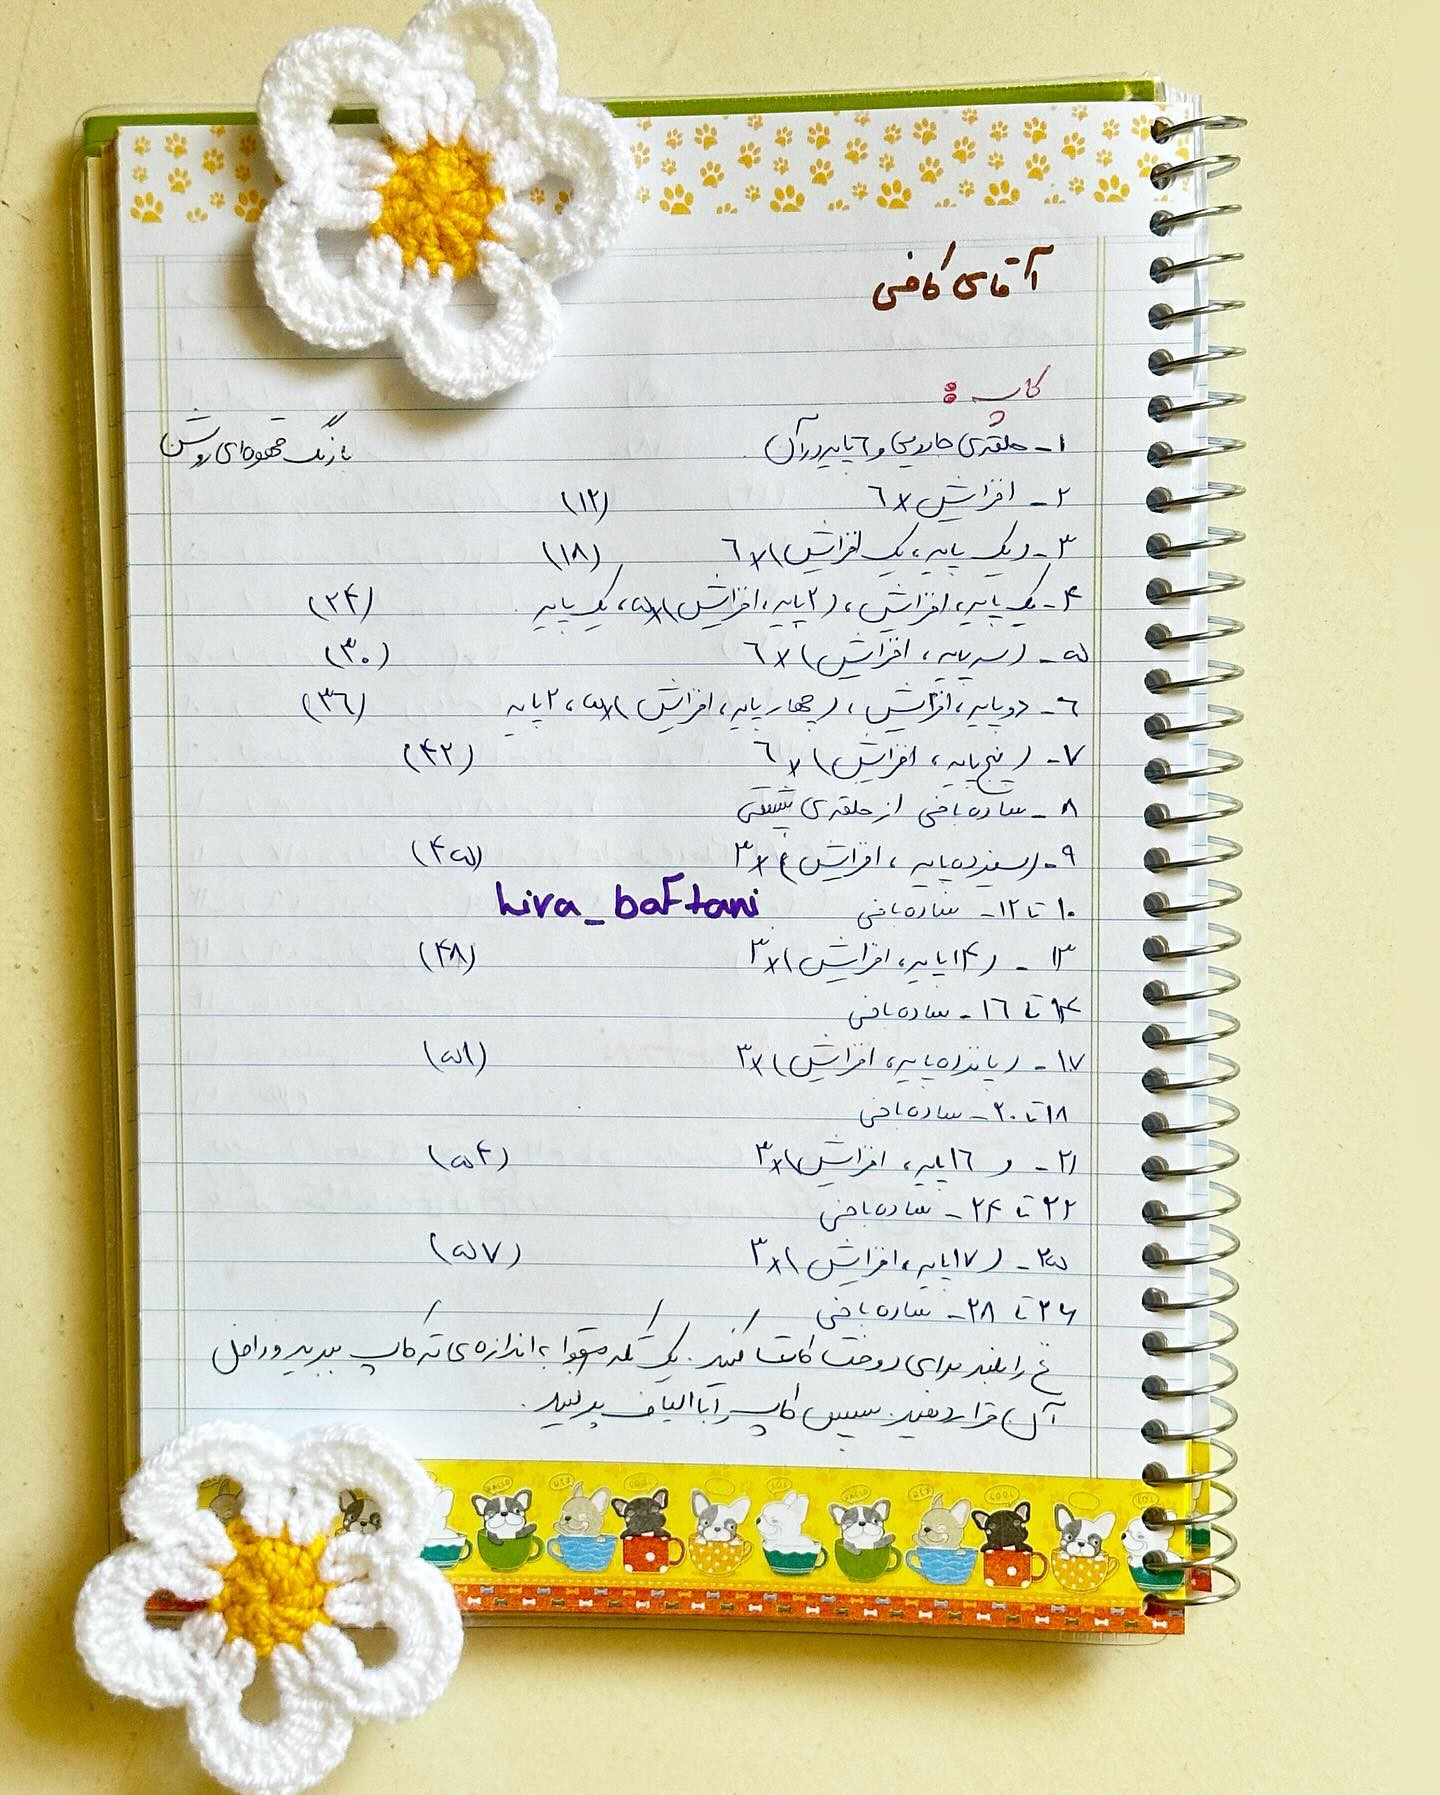 آقای کافی
کاپ :
۱- حلقه‌ی جادویی و ٦ پایه در آن. با رنگ قهوه‌ای روشن
۲- افزایش x ٦ (۱۲)
۳- (یک پایه، یک افزایش) x ٦ (۱۸)
۴- یک پایه، افزایش، (۲ پایه، افزایش) x ۵، یک پایه. (۲۴)
۵- (سه پایه، افزایش) x ٦ (۳۰)
٦- دو پایه، افزایش، (چهار پایه، افزایش) x ۵، ۲ پایه (۳٦)
۷- (پنج پایه، افزایش) x ٦ (۴۲)
۸- ساده بافی از حلقه‌ی پشتی
۹- (سیزده پایه، افزایش) x ۳ (۴۵)
۱۰ تا ۱۲- ساده بافی
hira_baftani
۱۳- (۱۴ پایه، افزایش) x ۳ (۴۸)
۱۴ تا ۱٦- ساده بافی
۱۷- (پانزده پایه، افزایش) x ۳ (۵۱)
۱۸ تا ۲۰- ساده بافی
۲۱- (۱٦ پایه، افزایش) x ۳ (۵۴)
۲۲ تا ۲۴- ساده بافی
۲۵- (۱۷ پایه، افزایش) x ۳ (۵۷)
۲۶ تا ۲۸- ساده بافی
نخ را بلند برای دوخت کات کنید. یک تکه مقوا به اندازه‌ی ته کاپ ببرید و داخل
آن قرار دهید. سپس کاپ را با الیاف پر کنید.